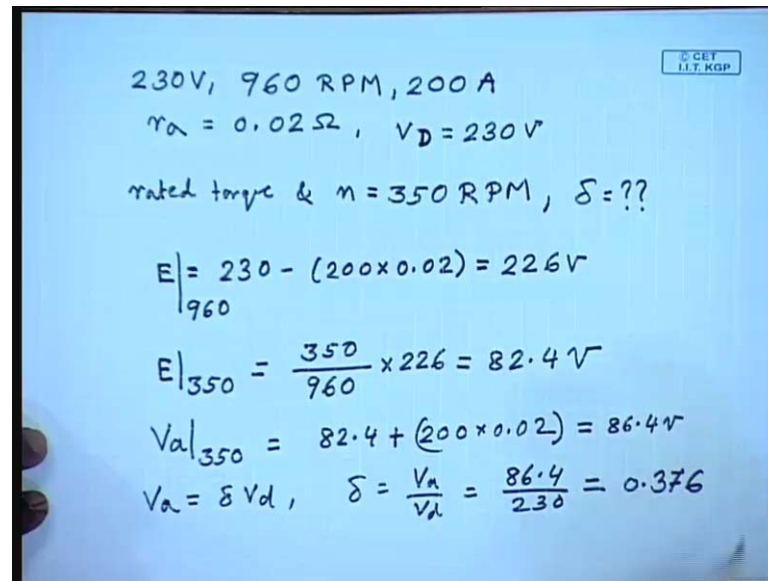 © CET
I.I.T. KGP
230V, 960 RPM, 200 A
ra = 0.02 Ω, VD = 230 V
rated torque & n = 350 RPM, δ = ??
E|960 = 230 - (200 × 0.02) = 226 V
E|350 = 350/960 × 226 = 82.4 V
Va|350 = 82.4 + (200 × 0.02) = 86.4 V
Va = δ Vd, δ = Va/Vd = 86.4/230 = 0.376